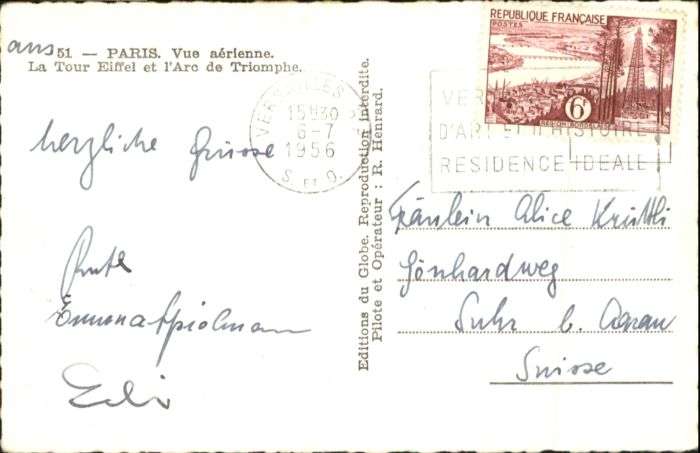 aus
51 — PARIS. Vue aérienne.
La Tour Eiffel et l'Arc de Triomphe.
herzliche Grüsse
Emma Spielmann
Edi
Editions du Globe. Reproduction interdite.
Pilote et Opérateur : R. Henrard.
VERSAILLES
15H30
6-7
1956
S. ET O.
REPUBLIQUE FRANÇAISE
POSTES
6F
REGION BORDELAISE
D'ART ET D'HISTOIRE
RESIDENCE IDEALE
Fräulein Alice
Gönhardweg
Suhr b. Aarau
Suisse